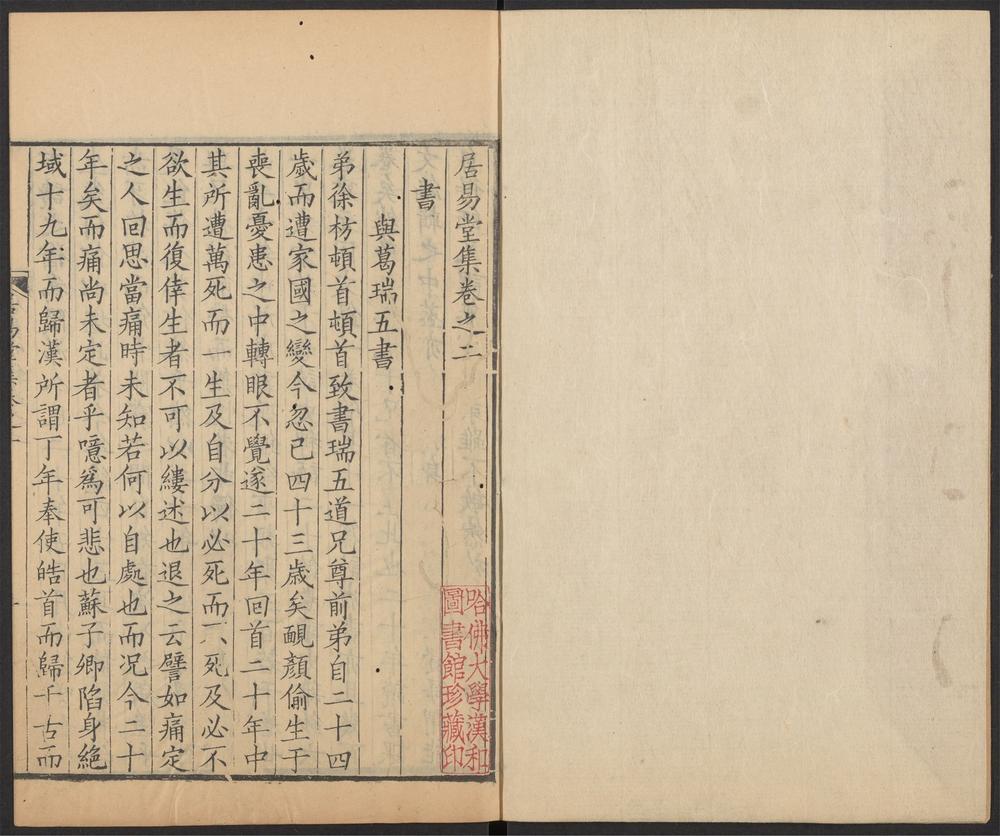 居易堂集卷之二
書
與葛瑞五書
弟徐枋頓首頓首致書瑞五道兄尊前弟自二十四
歲而遭家國之變今忽已四十三歲矣靦顏偷生于
喪亂憂患之中轉眼不覺遂二十年回首二十年中
其所遭萬死而一生及自分以必死而不死及必不
欲生而復倖生者不可以縷述也退之云譬如痛定
之人回思當痛時未知若何以自處也而况今二十
年矣而痛尚未定者乎噫爲可悲也蘇子卿陷身絶
域十九年而歸漢所謂丁年奉使皓首而歸千古而
哈佛大學漢和
圖書館珍藏印